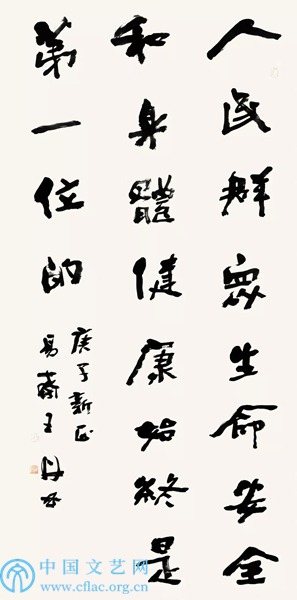 人民群眾生命安全
和身體健康始終是
第一位的
庚子新正
易齋王丹
中国文艺网
www.cflac.org.cn